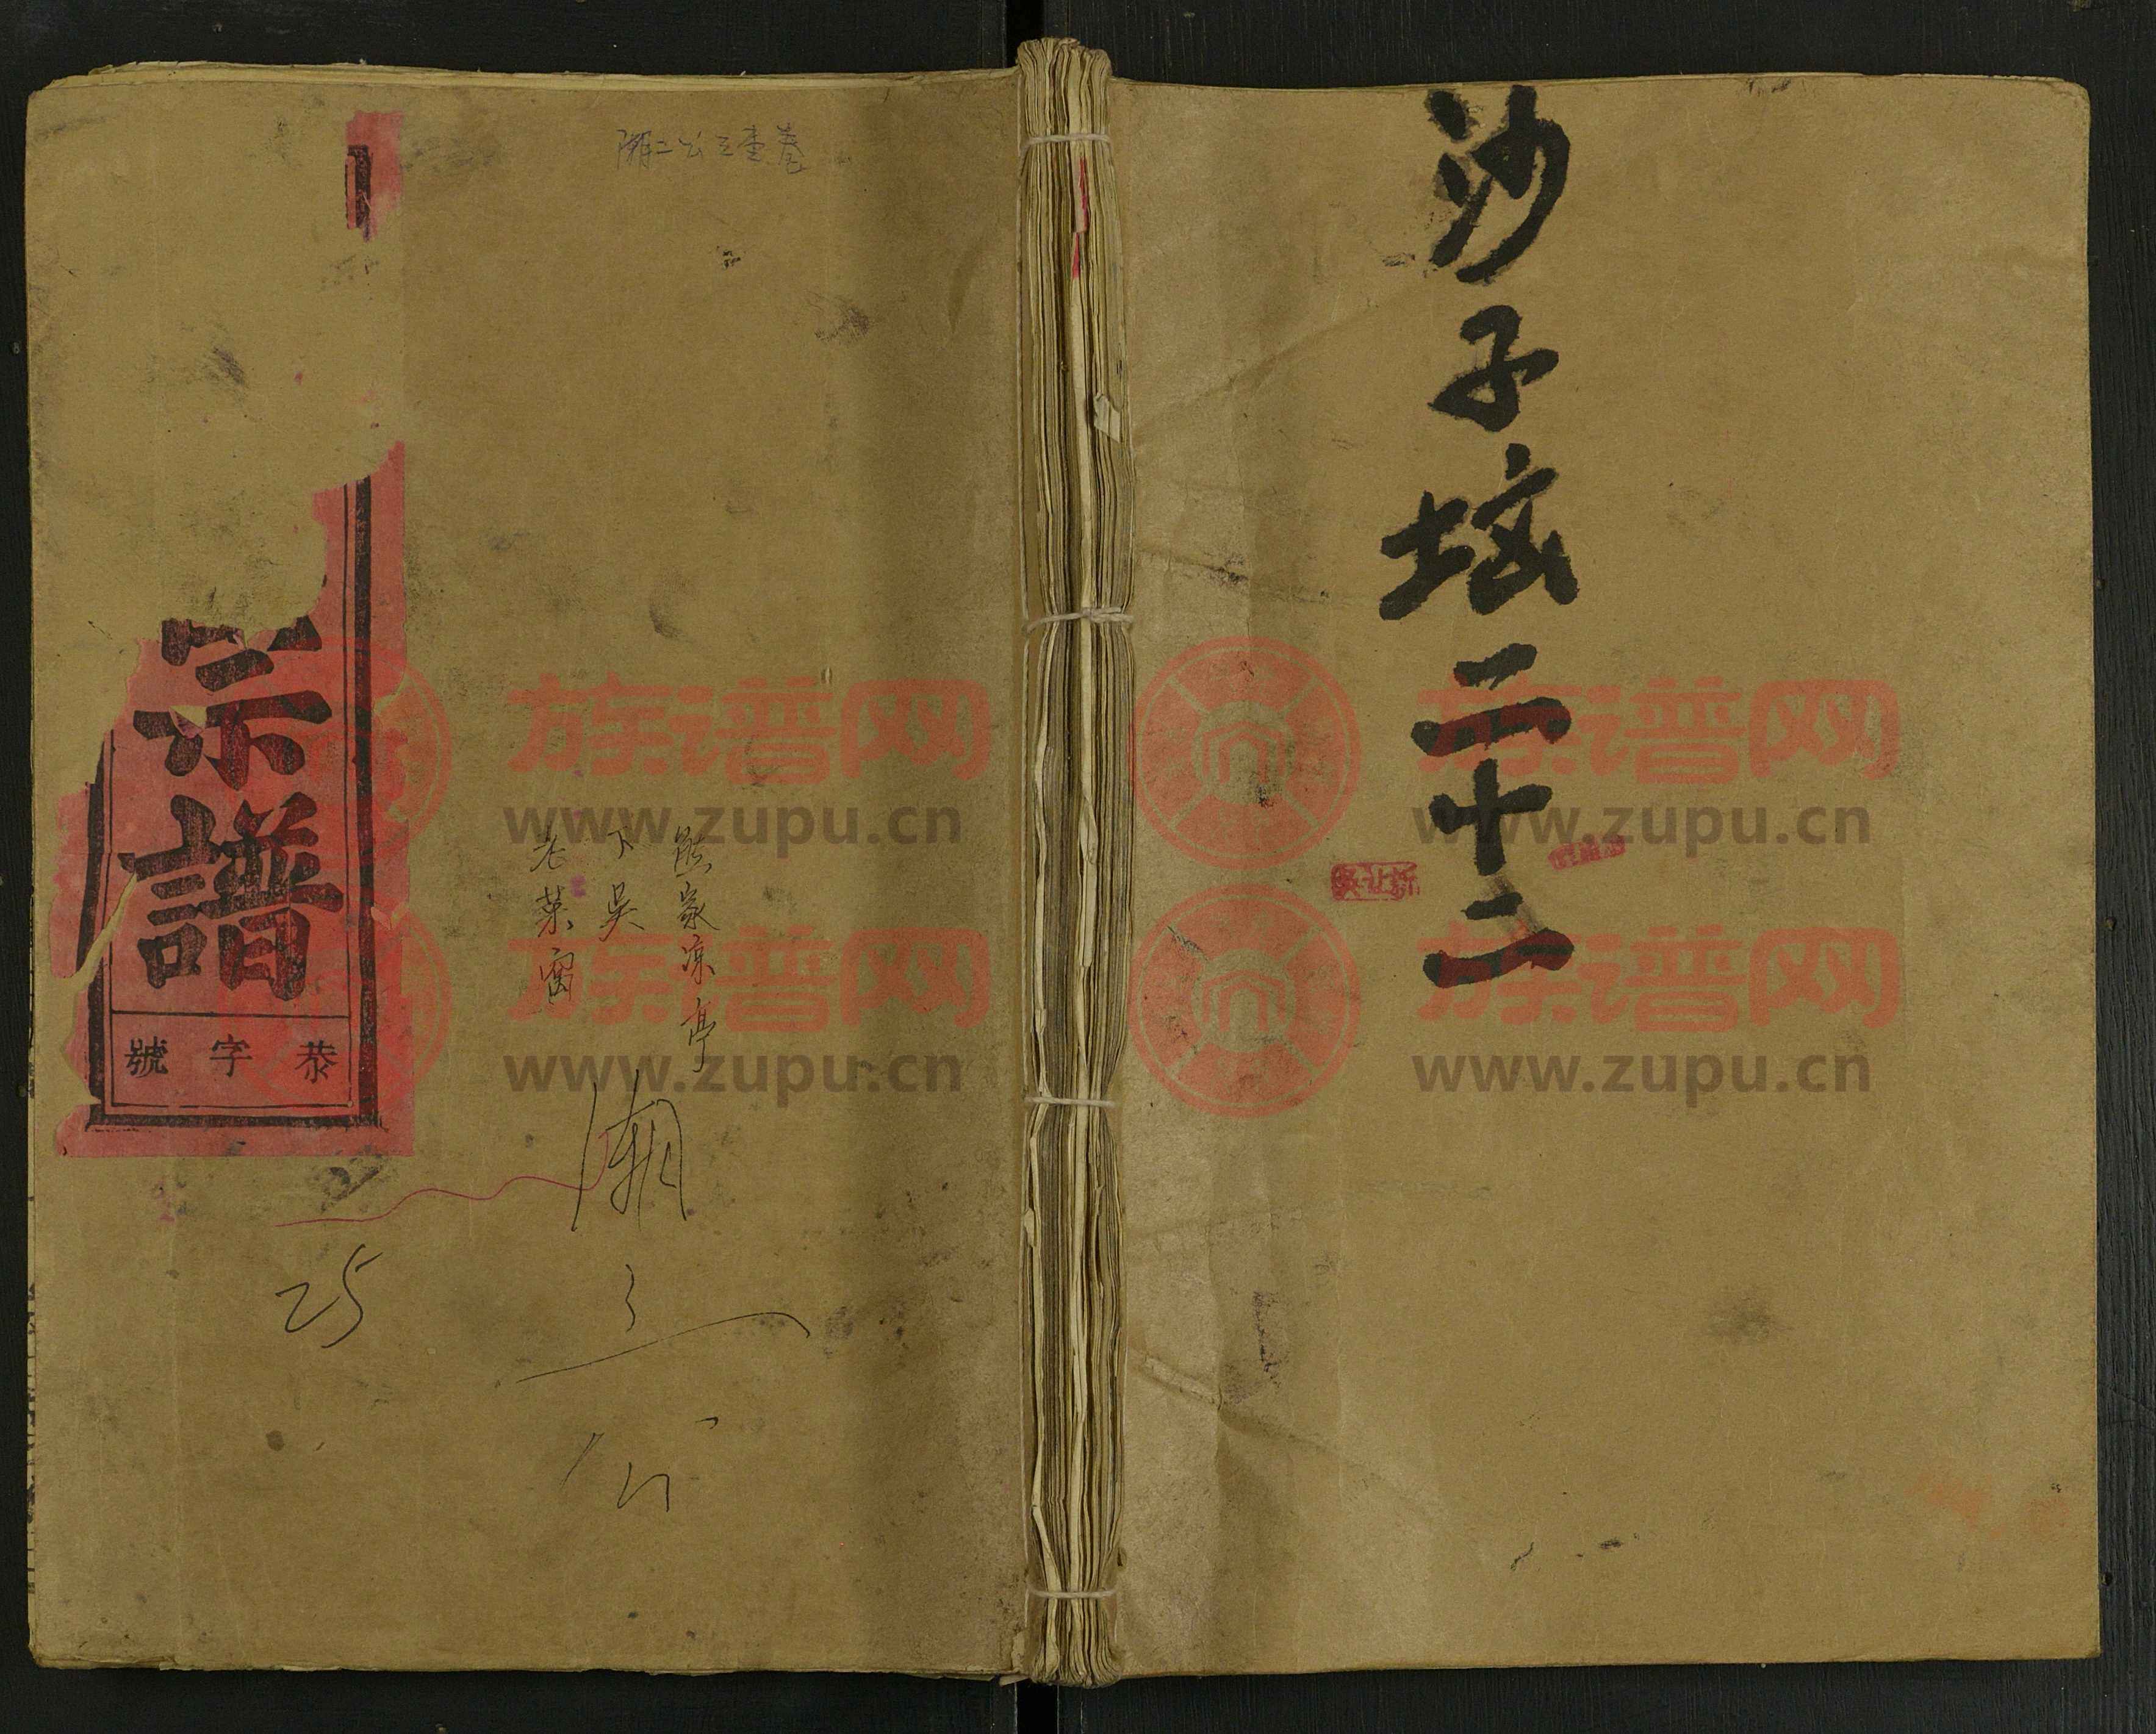 沙子垴二十二
吴让新
宗譜
恭字號
熊家凉亭
下吴
老菜窩
潮三公
25
族谱网
www.zupu.cn
族谱网
www.zupu.cn
族谱网
www.zupu.cn
族谱网
www.zupu.cn